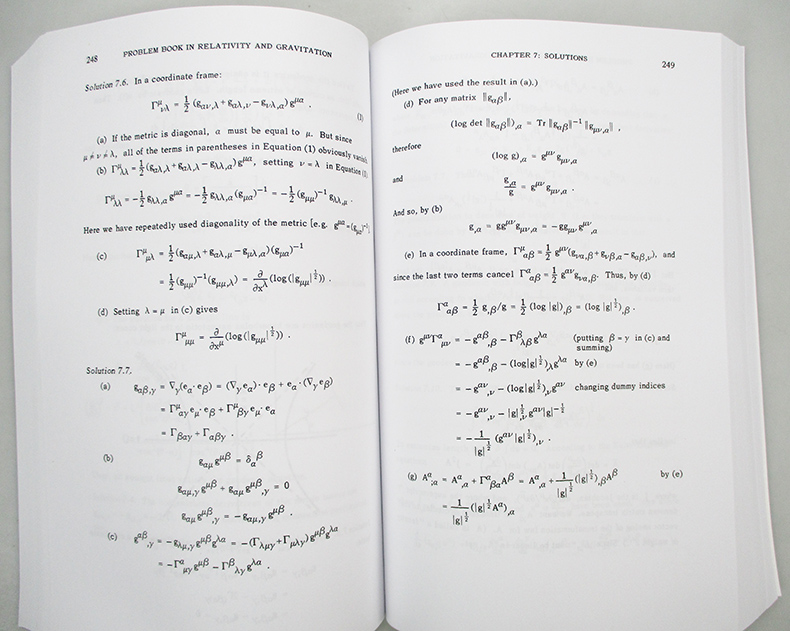 248 PROBLEM BOOK IN RELATIVITY AND GRAVITATION
Solution 7.6. In a coordinate frame:
Γ^μ_{νλ} = 1/2 (g_{αν,λ} + g_{αλ,ν} − g_{νλ,α}) g^{μα} . (1)
(a) If the metric is diagonal, α must be equal to μ. But since
μ ≠ ν ≠ λ, all of the terms in parentheses in Equation (1) obviously
(b) Γ^μ_{λλ} = 1/2 (g_{αλ,λ} + g_{αλ,λ} − g_{λλ,α}) g^{μα}, setting ν = λ in Equation (1)
Γ^μ_{λλ} = −1/2 g_{λλ,α} g^{μα} = −1/2 g_{λλ,α} (g_{μα})^{−1} = −1/2 (g_{μμ})^{−1} g_{λλ,μ} .
Here we have repeatedly used diagonality of the metric [e.g. g^{μα} = (g_{μα})^{−1}]
(c) Γ^μ_{μλ} = 1/2 (g_{αμ,λ} + g_{αλ,μ} − g_{μλ,α}) (g_{μα})^{−1}
= 1/2 (g_{μμ})^{−1} (g_{μμ,λ}) = ∂/∂x^λ (log(|g_{μμ}|^{1/2})) .
(d) Setting λ = μ in (c) gives
Γ^μ_{μμ} = ∂/∂x^μ (log(|g_{μμ}|^{1/2})) .
Solution 7.7.
(a) g_{αβ,γ} = ∇_γ(e_α · e_β) = (∇_γ e_α) · e_β + e_α · (∇_γ e_β)
= Γ^μ_{αγ} e_μ · e_β + Γ^μ_{βγ} e_μ · e_α
= Γ_{βαγ} + Γ_{αβγ} .
(b) g_{αμ} g^{μβ} = δ_α^β
g_{αμ,γ} g^{μβ} + g_{αμ} g^{μβ}_{,γ} = 0
g_{αμ} g^{μβ}_{,γ} = −g_{αμ,γ} g^{μβ} .
(c) g^{αβ}_{,γ} = −g_{λμ,γ} g^{μβ} g^{λα} = −(Γ_{λμγ} + Γ_{μλγ}) g^{μβ} g^{λα}
= −Γ^α_{μγ} g^{μβ} − Γ^β_{λγ} g^{λα} .
CHAPTER 7: SOLUTIONS 249
(Here we have used the result in (a).)
(d) For any matrix ‖g_{αβ}‖,
(log det ‖g_{αβ}‖)_{,α} = Tr ‖g_{αβ}‖^{−1} ‖g_{μν,α}‖ ,
therefore
(log g)_{,α} = g^{μν} g_{μν,α}
and
g_{,α}/g = g^{μν} g_{μν,α} .
And so, by (b)
g_{,α} = gg^{μν} g_{μν,α} = −gg_{μν} g^{μν}_{,α} .
(e) In a coordinate frame, Γ^μ_{αβ} = 1/2 g^{μν}(g_{να,β} + g_{νβ,α} − g_{αβ,ν}), and
since the last two terms cancel Γ^α_{αβ} = 1/2 g^{αν} g_{να,β}. Thus, by (d)
Γ^α_{αβ} = 1/2 g_{,β}/g = 1/2 (log |g|)_{,β} = (log |g|^{1/2})_{,β} .
(f) g^{μν} Γ^α_{μν} = −g^{αβ}_{,β} − Γ^β_{λβ} g^{λα} (putting β = γ in (c) and
summing)
= −g^{αβ}_{,β} − (log|g|^{1/2})_{,λ} g^{λα} by (e)
= −g^{αν}_{,ν} − (log|g|^{1/2})_{,ν} g^{αν} changing dummy indices
= −g^{αν}_{,ν} − |g|^{1/2}_{,ν} g^{αν} |g|^{−1/2}
= − 1/|g|^{1/2} (g^{αν} |g|^{1/2})_{,ν} .
(g) A^α_{;α} = A^α_{,α} + Γ^α_{βα} A^β = A^α_{,α} + 1/|g|^{1/2} (|g|^{1/2})_{,β} A^β by (e)
= 1/|g|^{1/2} (|g|^{1/2} A^α)_{,α}